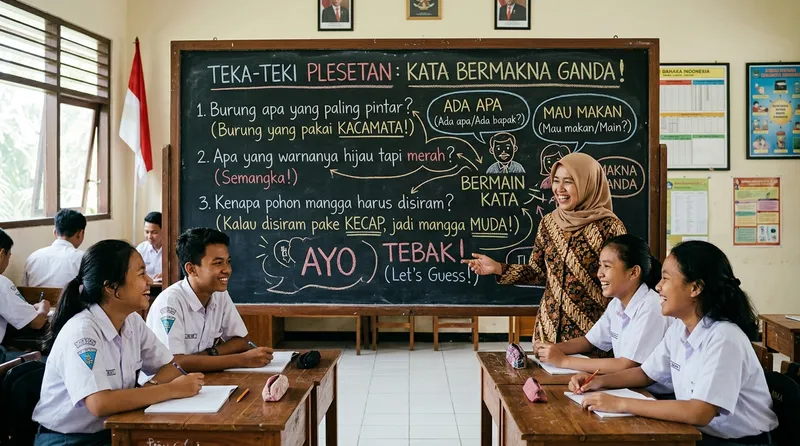 TEKA-TEKI PLESETAN: KATA BERMAKNA GANDA!
1. Burung apa yang paling pintar?
(Burung yang pakai KACAMATA!)
2. Apa yang warnanya hijau tapi merah?
(Semangka!)
3. Kenapa pohon mangga harus disiram?
(Kalau disiram pake KECAP, jadi mangga MUDA!)
AYO TEBAK!
(Let's Guess!)
ADA APA
(Ada apa/Ada bapak?)
MAU MAKAN
(Mau makan/Main?)
BERMAIN
KATA
MAKNA
GANDA
BAHASA INDONESIA